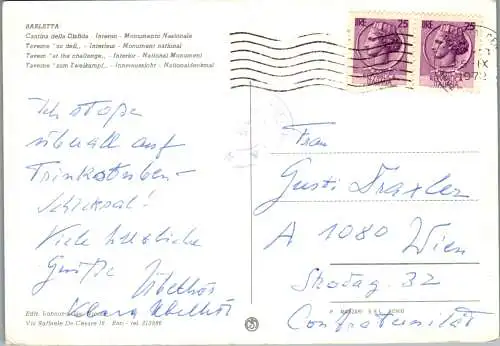 BARLETTA
Cantina della Disfida - Interno - Monumento Nazionale
Taverne "au défi,, - Interieur - Monument national
Tavern "at the challenge,, - Interior - National Monument
Taverne "zum Zweikampf,, - Innenansicht - Nationaldenkmal
LIRE 25
LIRE 25
IX
1972
Ich stoße
überall auf
Trinkstuben-
Schicksal!
Viele herzliche
Grüße
Frau
Gusti Draxler
A 1080 Wien
Skodag. 32
Confraternität
Edit.
Via Raffaele De Cesare 18 Bari - tel.